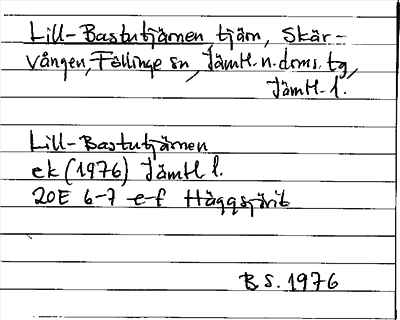 Lill-Bastutjärnen, tjärn, Skär-
vången, Föllinge sn, Jämtl. n. doms. tg,
Jämtl. l.
Lill-Bastutjärnen
ek (1976) Jämtl l.
20E 6-7 e-f Häggsjövik
B S. 1976